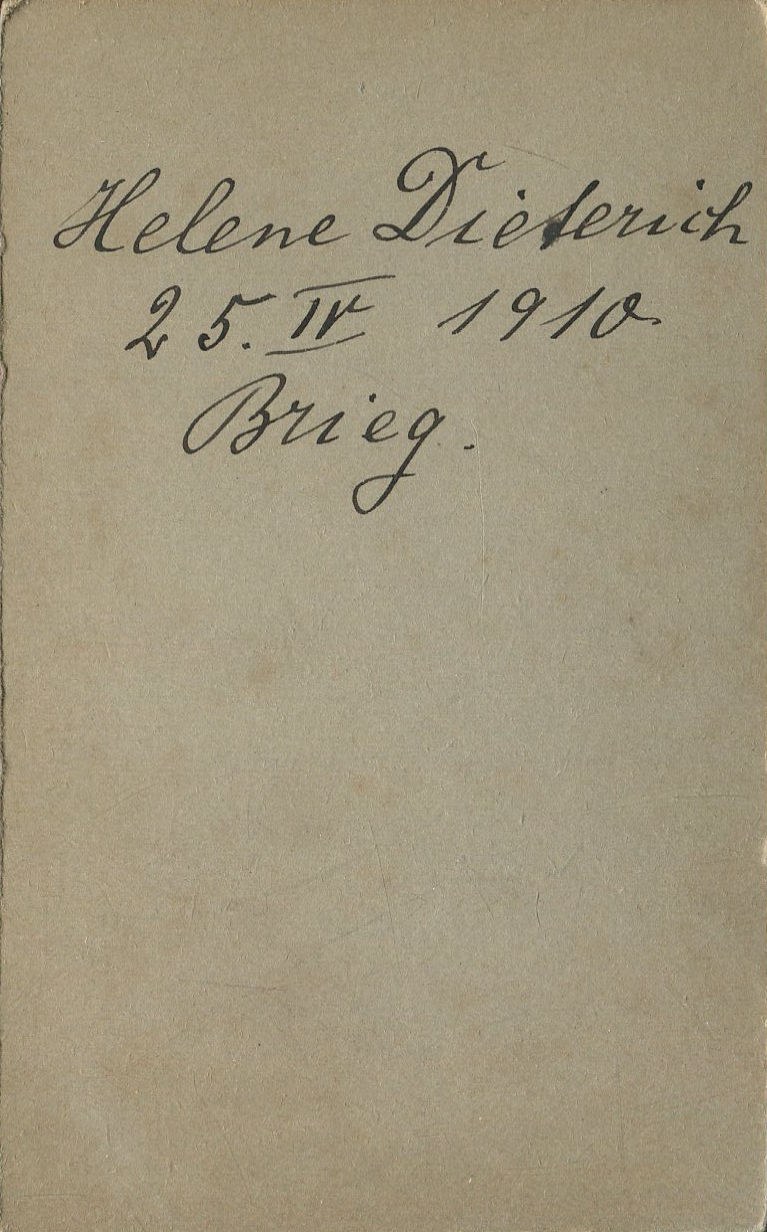 Helene Dieterich
25. IV 1910
Brieg.